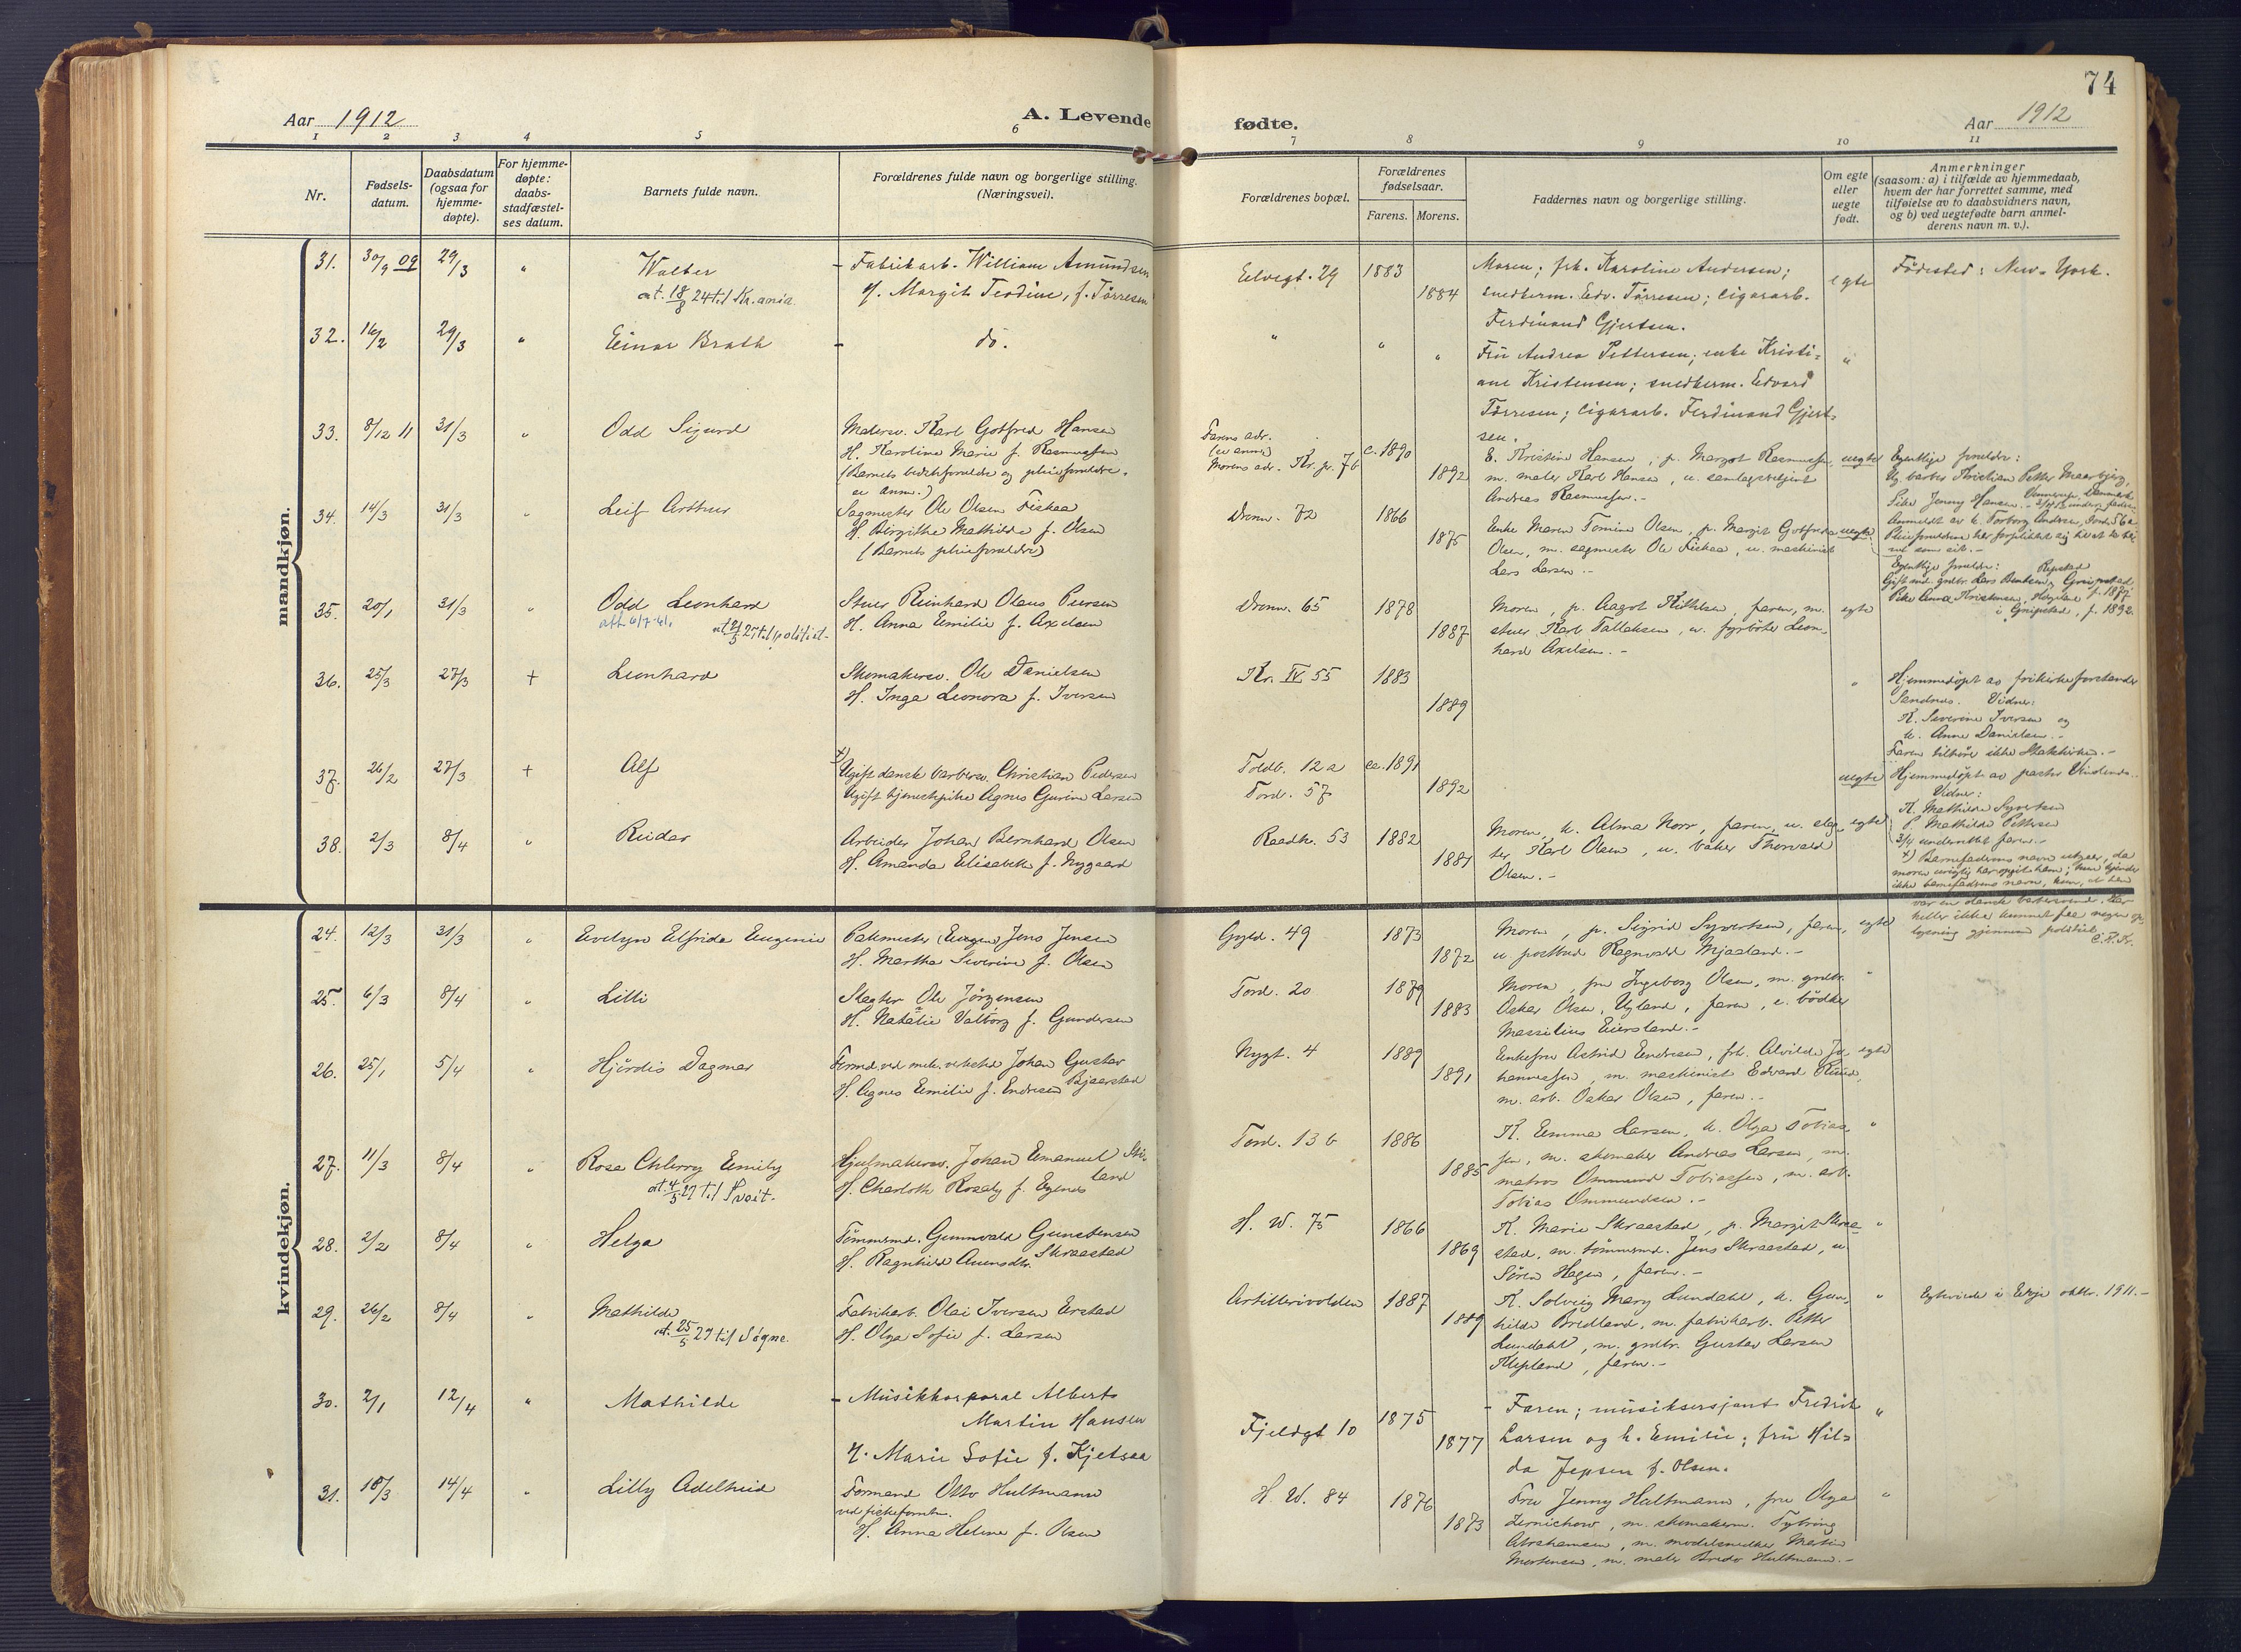 74
Aar 1912
A. Levende
fødte.
Aar 1912
1 2 3 4 5 6 7 8 9 10 11
Nr.
Fødsels-
datum.
Daabsdatum
(ogsaa for
hjemme-
døpte).
For hjemme-
døpte:
daabs-
stadfæstel-
ses datum.
Barnets fulde navn.
Forældrenes fulde navn og borgerlige stilling.
(Næringsvei).
Forældrenes bopæl.
Forældrenes
fødselsaar.
Farens. Morens.
Faddernes navn og borgerlige stilling.
Om egte
eller
uegte
født.
Anmerkninger
(saasom: a) i tilfælde av hjemmedaab,
hvem der har forrettet samme, med
tilføielse av to daabsvidners navn,
og b) ved uegtefødte barn anmel-
derens navn m. v.).
mandkjøn.
31. 30/9 09 29/3 " Walter
at. 18/8 24 til Kr.ania
- Fabrikarb. William Amundsen
H. Margit Teodine, f. Tørresen
Elvegt. 29 1883 1884
Moren; frk. Karoline Andersen;
snedkerm. Edv. Tørresen; cigararb.
Ferdinand Gjertsen.
egte
Fødested: New-York.
32. 16/2 29/3 " Einar Brath - do.
" " "
Fru Andrea Pettersen; enke Kristi=
ane Kristensen; snedkerm. Edvard
Tørresen; cigararb. Ferdinand Gjert=
sen.
"
33. 8/12 11 31/3 " Odd Sigurd
Malersv. Karl Gotfred Hansen
H. Karoline Marie f. Rasmussen
(Barnets bedsteforældre og pleieforældre.
se anm.)
Farens adr.
(se anm.)
Morens adr. Kr. pr. 76
c. 1890 1892
E. Kristine Hansen, p. Margot Rasmussen
m. maler Karl Hansen, u.
Andreas Rasmussen.-
uegte
Egentlige forældre:
Ug. barber Kristian Petter
Pike Jenny Hansen.-
34. 14/3 31/3 " Leif Arthur
Sagmester Ole Olsen Fiskaa
H. Birgithe Mathilde f. Olsen
(Barnets pleieforældre)
Dronn. 72 1866 1875
Enke Maren Tomine Olsen, p. Margit Gotfreda
Olsen, m. sagmester Ole Fiskaa, u. maskinist
Lars Larsen.-
uegte
Egentlige forældre:
35. 20/1 31/3 " Odd Leonhard
at 2/5 27 til politiet-
Stuer Reinhard Olaus Pedersen
H. Anna Emilie f. Axelsen
Dronn. 65 1878 1887
Moren, p. Aagot Kittelsen, faren, m.
stuer Karl Tallaksen, u. fyrbøter Leon-
hard Axelsen.-
egte
36. 25/3 27/3 + Leonhard
Skomakersv. Ole Danielsen
H. Inga Leonora f. Iversen
Kr. IV 55 1883 1889
"
Hjemmedøpt av frikirkeforstander
Sandnes. Vidner:
K. Severine Iversen og
k. Anne Danielsen.-
Faren tilhører ikke Statskirken.-
37. 26/2 27/3 + Alf
x) Ugift dansk barbersv. Christian Pedersen
Ugift tjenestepike Agnes Gurine Larsen
Toldb. 12a
Tord. 57
ca. 1891 1892
uegte
Hjemmedøpt av pastor
Vidner:
K. Mathilde Syvertsen
P. Mathilde Pettersen
3/4 underrettet faren.-
x) Barnefaderens navn utgaar, da
moren urigtig har opgit ham; hun kjender
ikke barnefaderens navn, kun, at han
var en dansk barbersvend. Har
heller ikke kunnet faa nogen op-
lysning gjennem politiet.
38. 2/3 8/4 " Reidar
Arbeider Johan Bernhard Olsen
H. Amanda Elisabeth f. Nygaard
Raadh. 53 1882 1881
Moren, k. Alma Norr, faren, u. slag-
ter Karl Olsen, u. baker Thorvald
Olsen.-
egte
kvindekjøn.
24. 12/3 31/3 " Evelyn Elfrida Eugenie
Pakmester Eugen Jens Jensen
H. Martha Severine f. Olsen
Gyld. 49 1873 1872
Moren, p. Sigrid Syvertsen, faren,
u. postbud Ragnvald Mjaaland.-
egte
25. 6/3 8/4 " Lilli
Slagter Ole Jørgensen
H. Natalie Valborg f. Gundersen
Tord. 20 1879 1883
Moren, fru Ingeborg Olsen, m. grdbr.
Oskar Olsen, Ugland, faren, u. bødker
Massilius Eiersland.-
"
26. 25/1 5/4 " Hjørdis Dagmar
Formd. ved mek. verksted Johan Gustav
Bjaarstad
H. Agnes Emilie f. Endresen
Nygt. 4 1889 1891
Enkefru Astrid Endresen, frk. Alvilde Jo-
hannessen, m. maskinist Edvard Ruud,
m. arb. Oskar Olsen, faren.-
egte
27. 11/3 8/4 " Rosa Cherry Emily
at. 4/5 27 til Tveit.
Hjulmakersv. Johan Emanuel Sti-
land
H. Charlotte Rosaly f. Egenes
Tord. 13 b 1886 1885
K. Emma Larsen, k. Olga Tobias-
sen, m. skomaker Andreas Larsen, m.
matros Ommund Tobiassen, m. arb.
Tobias Ommundsen.-
"
28. 2/2 8/4 " Helga
Tømmermd. Gunnvald Gunstensen
Skraastad
H. Ragnhild Aanensdtr.
H. W. 75 1866 1869
K. Marie Skraastad, p. Margit Skraa-
stad, m. tømmermd. Jens Skraastad, u.
Søren Hagen, faren.-
"
29. 26/2 8/4 " Mathilde
at. 25/5 29 til Søgne.
Fabrikarb. Olai Iversen Erstad
H. Olga Sofie f. Larsen
Artillerivolden 1887 1889
K. Solveig Mary Lundahl, k. Gun-
hilde Bredland, m. fabrikarb. Petter
Lundahl, m. grdbr. Gustav Larsen
Klepland, faren.-
"
Egteviede i oktbr. 1911.-
30. 2/1 12/4 " Mathilde
- Musikkorporal Alberts
Martin Hansen
H. Marie Sofie f. Kjetsaa
Fjeldgt 10 1875 1877
- Faren; musiksersjant Fredrik
Larsen og h. Emilie; fru Hil=
da Jepsen f. Olsen.
"
31. 18/3 14/4 " Lilly Adelheid
Formand Otto Hultmann
ved
H. Anna Helene f. Olsen
H. W. 84 1876 1873
Fru Jenny Hultmann, fru Olga
Zernichow, m. skomakerm. Tybring
Abrahamsen, m. modelsnedker Martin
Mortensen, m. maler Bredo Hultmann.-
"